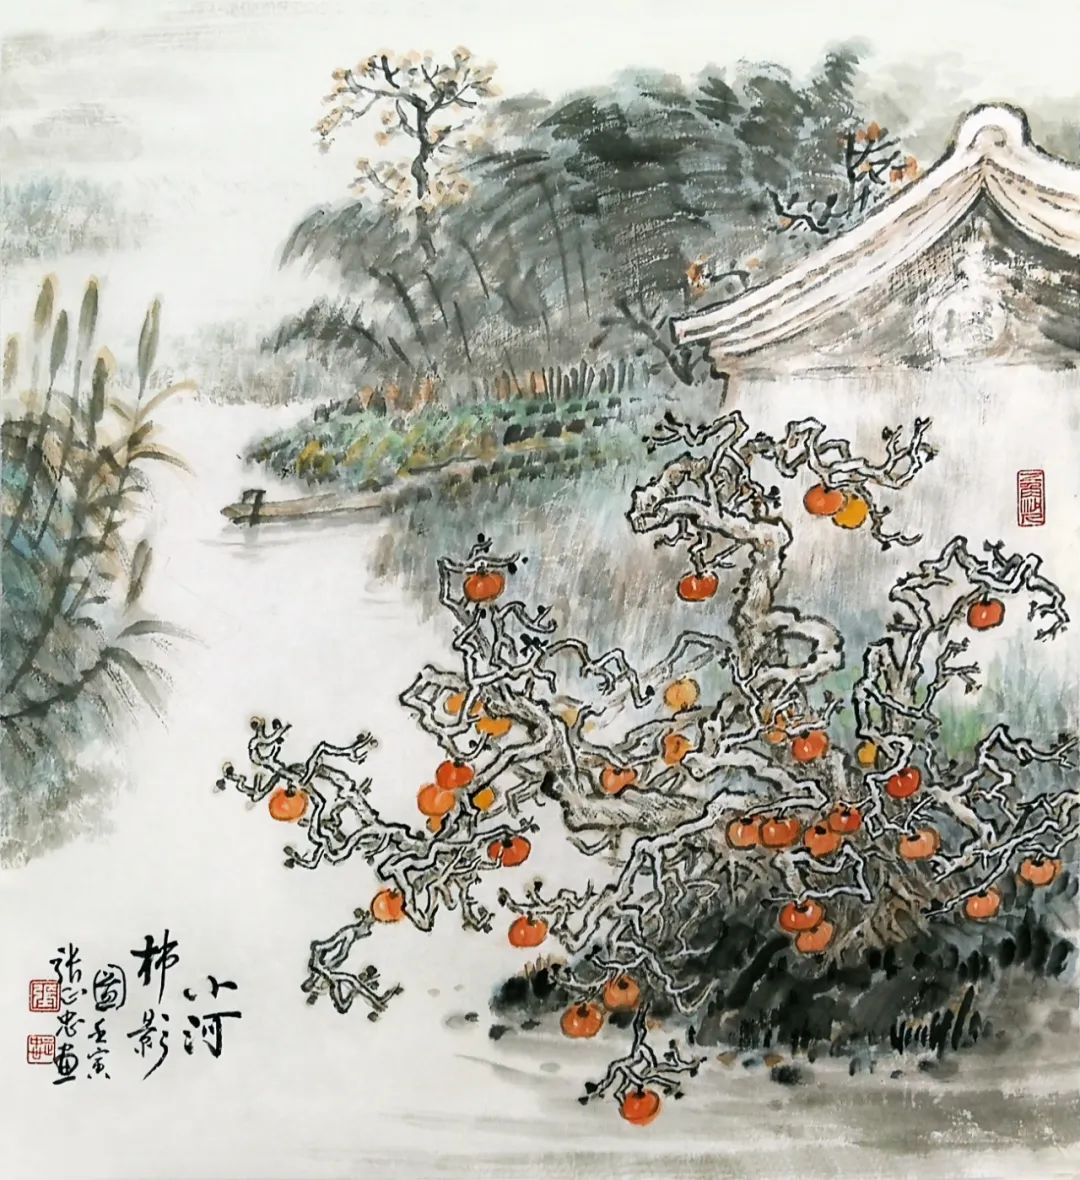 小河
柿影
圖壬寅
张心忠画